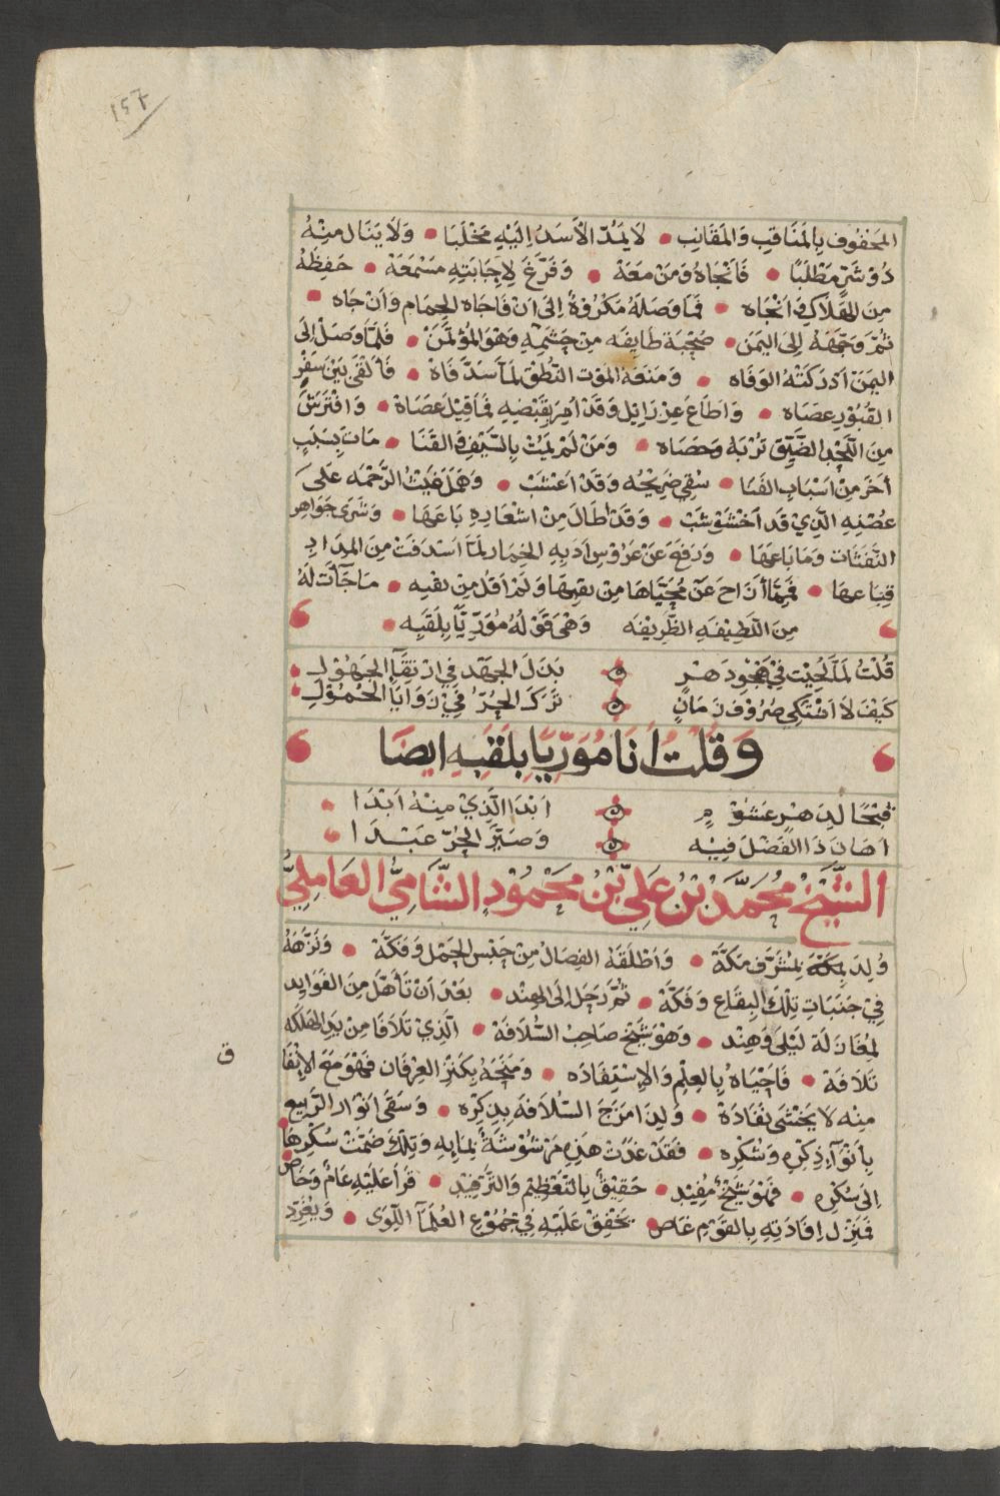 ١٥٧
المَحفُوف بِالمَنَاقِبِ وَالمَقَانِبِ • لَا يَمُدّ الأَسَدُ اِلَيْهِ مَخْلَبَا • وَلَا يَنَال مِنْهُ
ذُوْ شَرٍّ مَطْلَبًا • فَاَنْجَاهُ وَمَنْ مَعَهْ • وَفَرَّغَ لِاِجَابَتِهِ مَسْمَعَهْ • حَفِظَهُ
مِنَ الهَلَاكِ وَانْجَاه • فَمَا وَصَلَهُ مَكْرُوْهٌ اِلَى اَنْ فَاجَاه الحِمَام وَاَنْ جَاه •
ثُمَّ وَجَّهَهُ اِلَى اليَمَنْ • صُحْبَة طَايِفَه مِنْ حَشَمِهِ وَهْوَ المُؤْتَمَنْ • فَلَمَّا وَصَلَ اِلَى
اليَمَنْ اَدْرَكَتْهُ الوَفَاه • وَمَنَعَهُ المَوْت النُّطْق لَمَّا سَدَّ فَاهْ • فَاَلْقَى بَيْنَ سَفْرِ
القُبُوْرِ عَصَاه • وَاَطَاعَ عِزْرَائِيل وَقَدْ اُمِرَ بِقَبْضِهِ فَمَا قِيْلَ عَصَاهْ • وَافْتَرَشَ
مِنَ اللَّحْدِ الضَّيِّقِ تُرْبَهُ وَحَصَاه • وَمَنْ لَمْ يَمُتْ بِالسَّيْفِ وَالقَنَا • مَاتَ بِسَبَبٍ
اٰخَرَ مِنْ اَسْبَابِ الفَنَا • سُقِي ضَرِيْحُه وَقَدْ اعْشَبْ • وَهَمَلَ غَيْثُ الرَّحْمَه عَلَى
غُصْنِهِ الَّذِيْ قَد اخْشَوْشَبْ • وَقَدْ اَطَالَ مِنْ اشْعَارِهِ بَاعَهَا • وَشَرَى جَوَاهِر
النَّفَثَات وَمَا بَاعَهَا • وَرَفَعَ عَنْ عَرُوْسِ اَدَبِهِ الخِمَار لَمَّا اسْدَفَتْ مِنَ المِدَادِ
قِنَاعهَا • فَمِمَّا أَزَاحَ عَنْ مُحَيَّاهَا مِنْ نقبهَا وَلَمْ اَقُلْ مِنْ نقبِه • مَا جَآءَتْ لَهُ
مِنَ اللَّطِيْفَهِ الظَّرِيْفَه وَهْيَ قَوْلهُ مُوَرِّيًا بِلَقَبِه •
قُلْتُ لَمَّا لُحِيْت فِيْ هَجْوِ دَهْرٍ بَذَلَ الجهْد فِي ارْتقَآء الجَهُوْلِ
كَيْفَ لَا اَشْتَكِي صُرُوْفَ زَمَانٍ تَرَكَ الحُرّ فِيْ زَوَايَا الخُمُوْلِ
وَقُلْتُ اَنَا مُوَرِّيًا بِلَقَبِهِ ايضَا
قُبْحًا لِدَهْرٍ غَشُوْمٍ اَبْدَا الَّذِيْ مِنْهُ اَبْدَا
اهَانَ ذَا الفَضْلَ فِيْه وَصَيَّرَ الحُرّ عَبْدَا
الشَّيْخ مُحَمَّد بْن عَلِيّ بْن مَحْمُوْد الشَّامِيُّ العَامِلِيُّ
وُلِدَ بِمَكَّةَ بِمُشَرَّف مَكَّهْ • وَاَطْلَقَهُ الفِصَالُ مِنْ حَبْسِ الحَمْل وَفَكَّهْ • وَنَزَّهَهُ
فِيْ جَنَبَاتِ تِلْكَ البِقَاع وَفَكَّهْ • ثُمَّ رَحَلَ اِلَى الهِنْد • بَعْدَ اَنْ تَأَهَّلَ مِنَ الفَوَايِد
لِمُغَازَلَة لَيْلَى وَهِنْد • وَهْوَ شَيْخ صَاحِبُ السُّلَافَهْ • الَّذِيْ تَلَافَا مِنْ يَدِ الهَلَكَه
تَلَافَهْ • فَاَحْيَاهُ بِالعِلْمِ وَالاِسْتِفَادَه • وَمَنَحَهُ بِكَنْزِ العِرْفَان فَهْوَ مَعَ الاِنْفَا
ق
مِنْه لَا يَخْشَى نَفَادَهْ • وَلِذَا مَزَجَ السُّلَافَهَ بِذِكْرِه • وَسَقَى انْوَار الرَّبِيع
بِاَنْوَآءِ ذِكْرِهِ وَشُكْرِه • فَقَدْ غَدَتْ هَذِهِ مَرْشُوْشَةً بِمَآئِهِ وَتِلْكَ ضَمَّتْ سُكْرهَا
اِلَى سُكْرِه • فَهْوَ شَيْخٌ مُفِيْد • حَقِيْقٌ بِالتَّعْظِيْم وَالتَّرْفِيْد • قَرَأ عَلَيْهِ عَامٌ وَخَاص
فَمَنْزِل اِفَادَتِهِ بِالقَوْمِ غَاص • يَخْفِقُ عَلَيْهِ فِيْ جُمُوْعِ العُلَمَآ اللِّوَى • وَيُغَرِّد